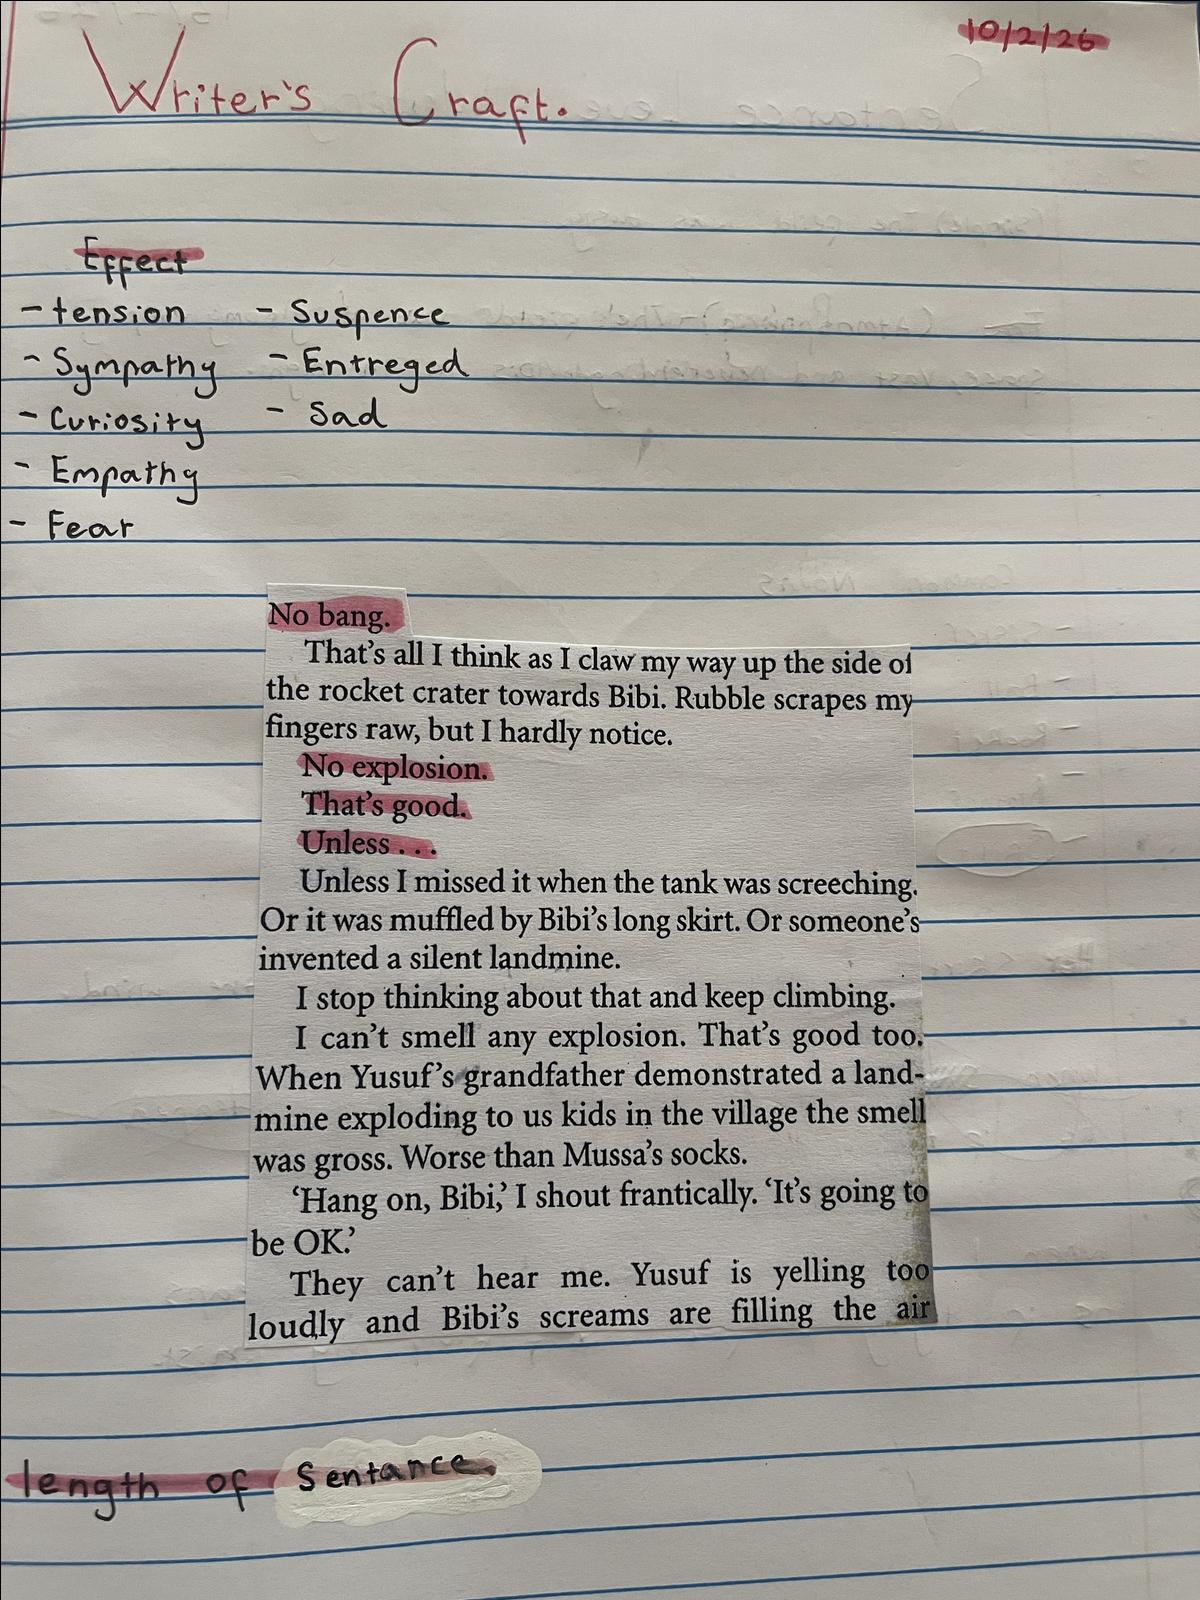 10/2/26
Writer's Craft.
Effect
- tension - Suspence
- Sympathy - Entreged
- Curiosity - Sad
- Empathy
- Fear
No bang.
That's all I think as I claw my way up the side of
the rocket crater towards Bibi. Rubble scrapes my
fingers raw, but I hardly notice.
No explosion.
That's good.
Unless . . .
Unless I missed it when the tank was screeching.
Or it was muffled by Bibi's long skirt. Or someone's
invented a silent landmine.
I stop thinking about that and keep climbing.
I can't smell any explosion. That's good too.
When Yusuf's grandfather demonstrated a land-
mine exploding to us kids in the village the smell
was gross. Worse than Mussa's socks.
‘Hang on, Bibi,’ I shout frantically. ‘It's going to
be OK.’
They can't hear me. Yusuf is yelling too
loudly and Bibi's screams are filling the air
length of Sentance.